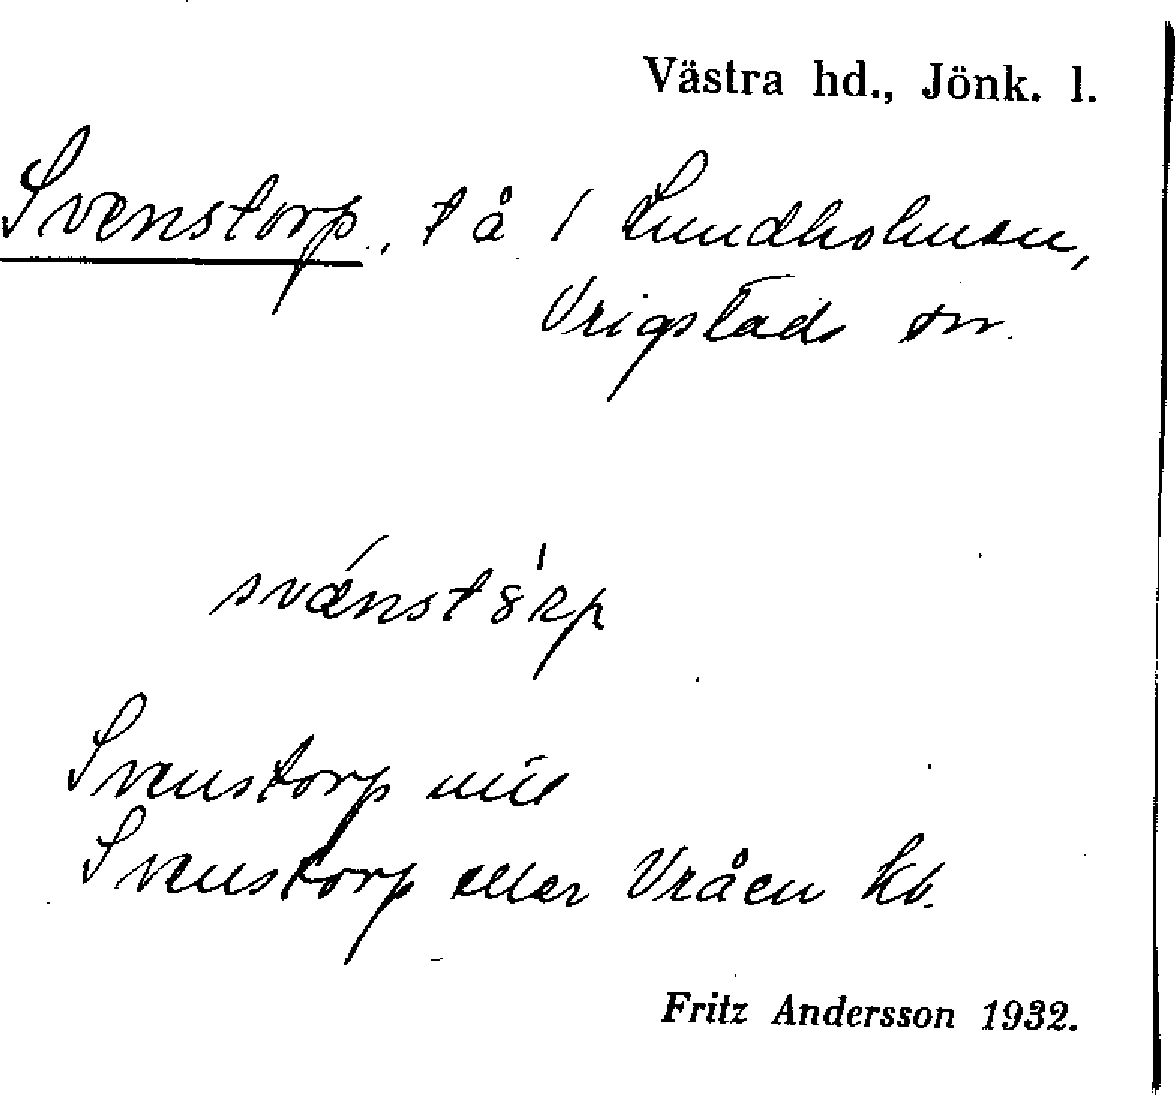 Västra hd., Jönk. l.
Svenstorp, t å / Lundholmen,
Vrigstads sn.
svä́nstȣ́ʀp
Svenstorp
Svenstorp eller Vråen kb.
Fritz Andersson 1932.